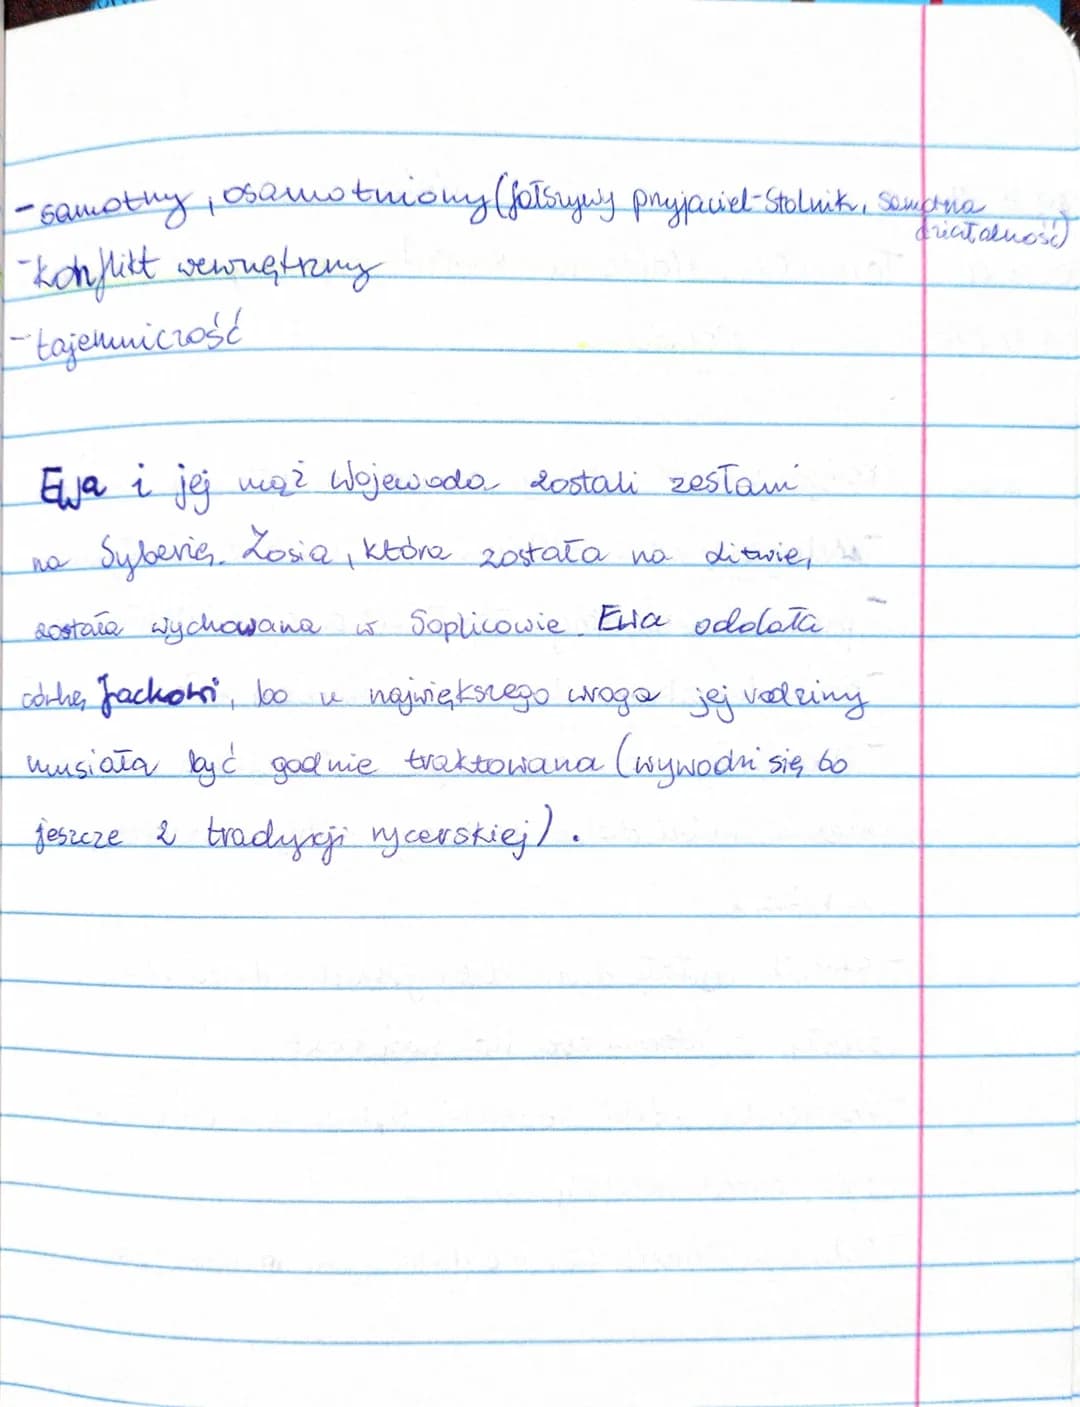 - samotny, osamotniony (fałszywy przyjaciel-Stolnik, samotna
działalność)
- konflikt wewnętrzny
- tajemniczość
Ewa i jej mąż Wojewoda zostali zesłani
na Syberię. Zosia, która została na Litwie,
została wychowana w Soplicowie. Ewa oddała
córkę Jackowi, bo u największego wroga jej rodziny
musiała być godnie traktowana (wywodzi się to
jeszcze z tradycji rycerskiej).